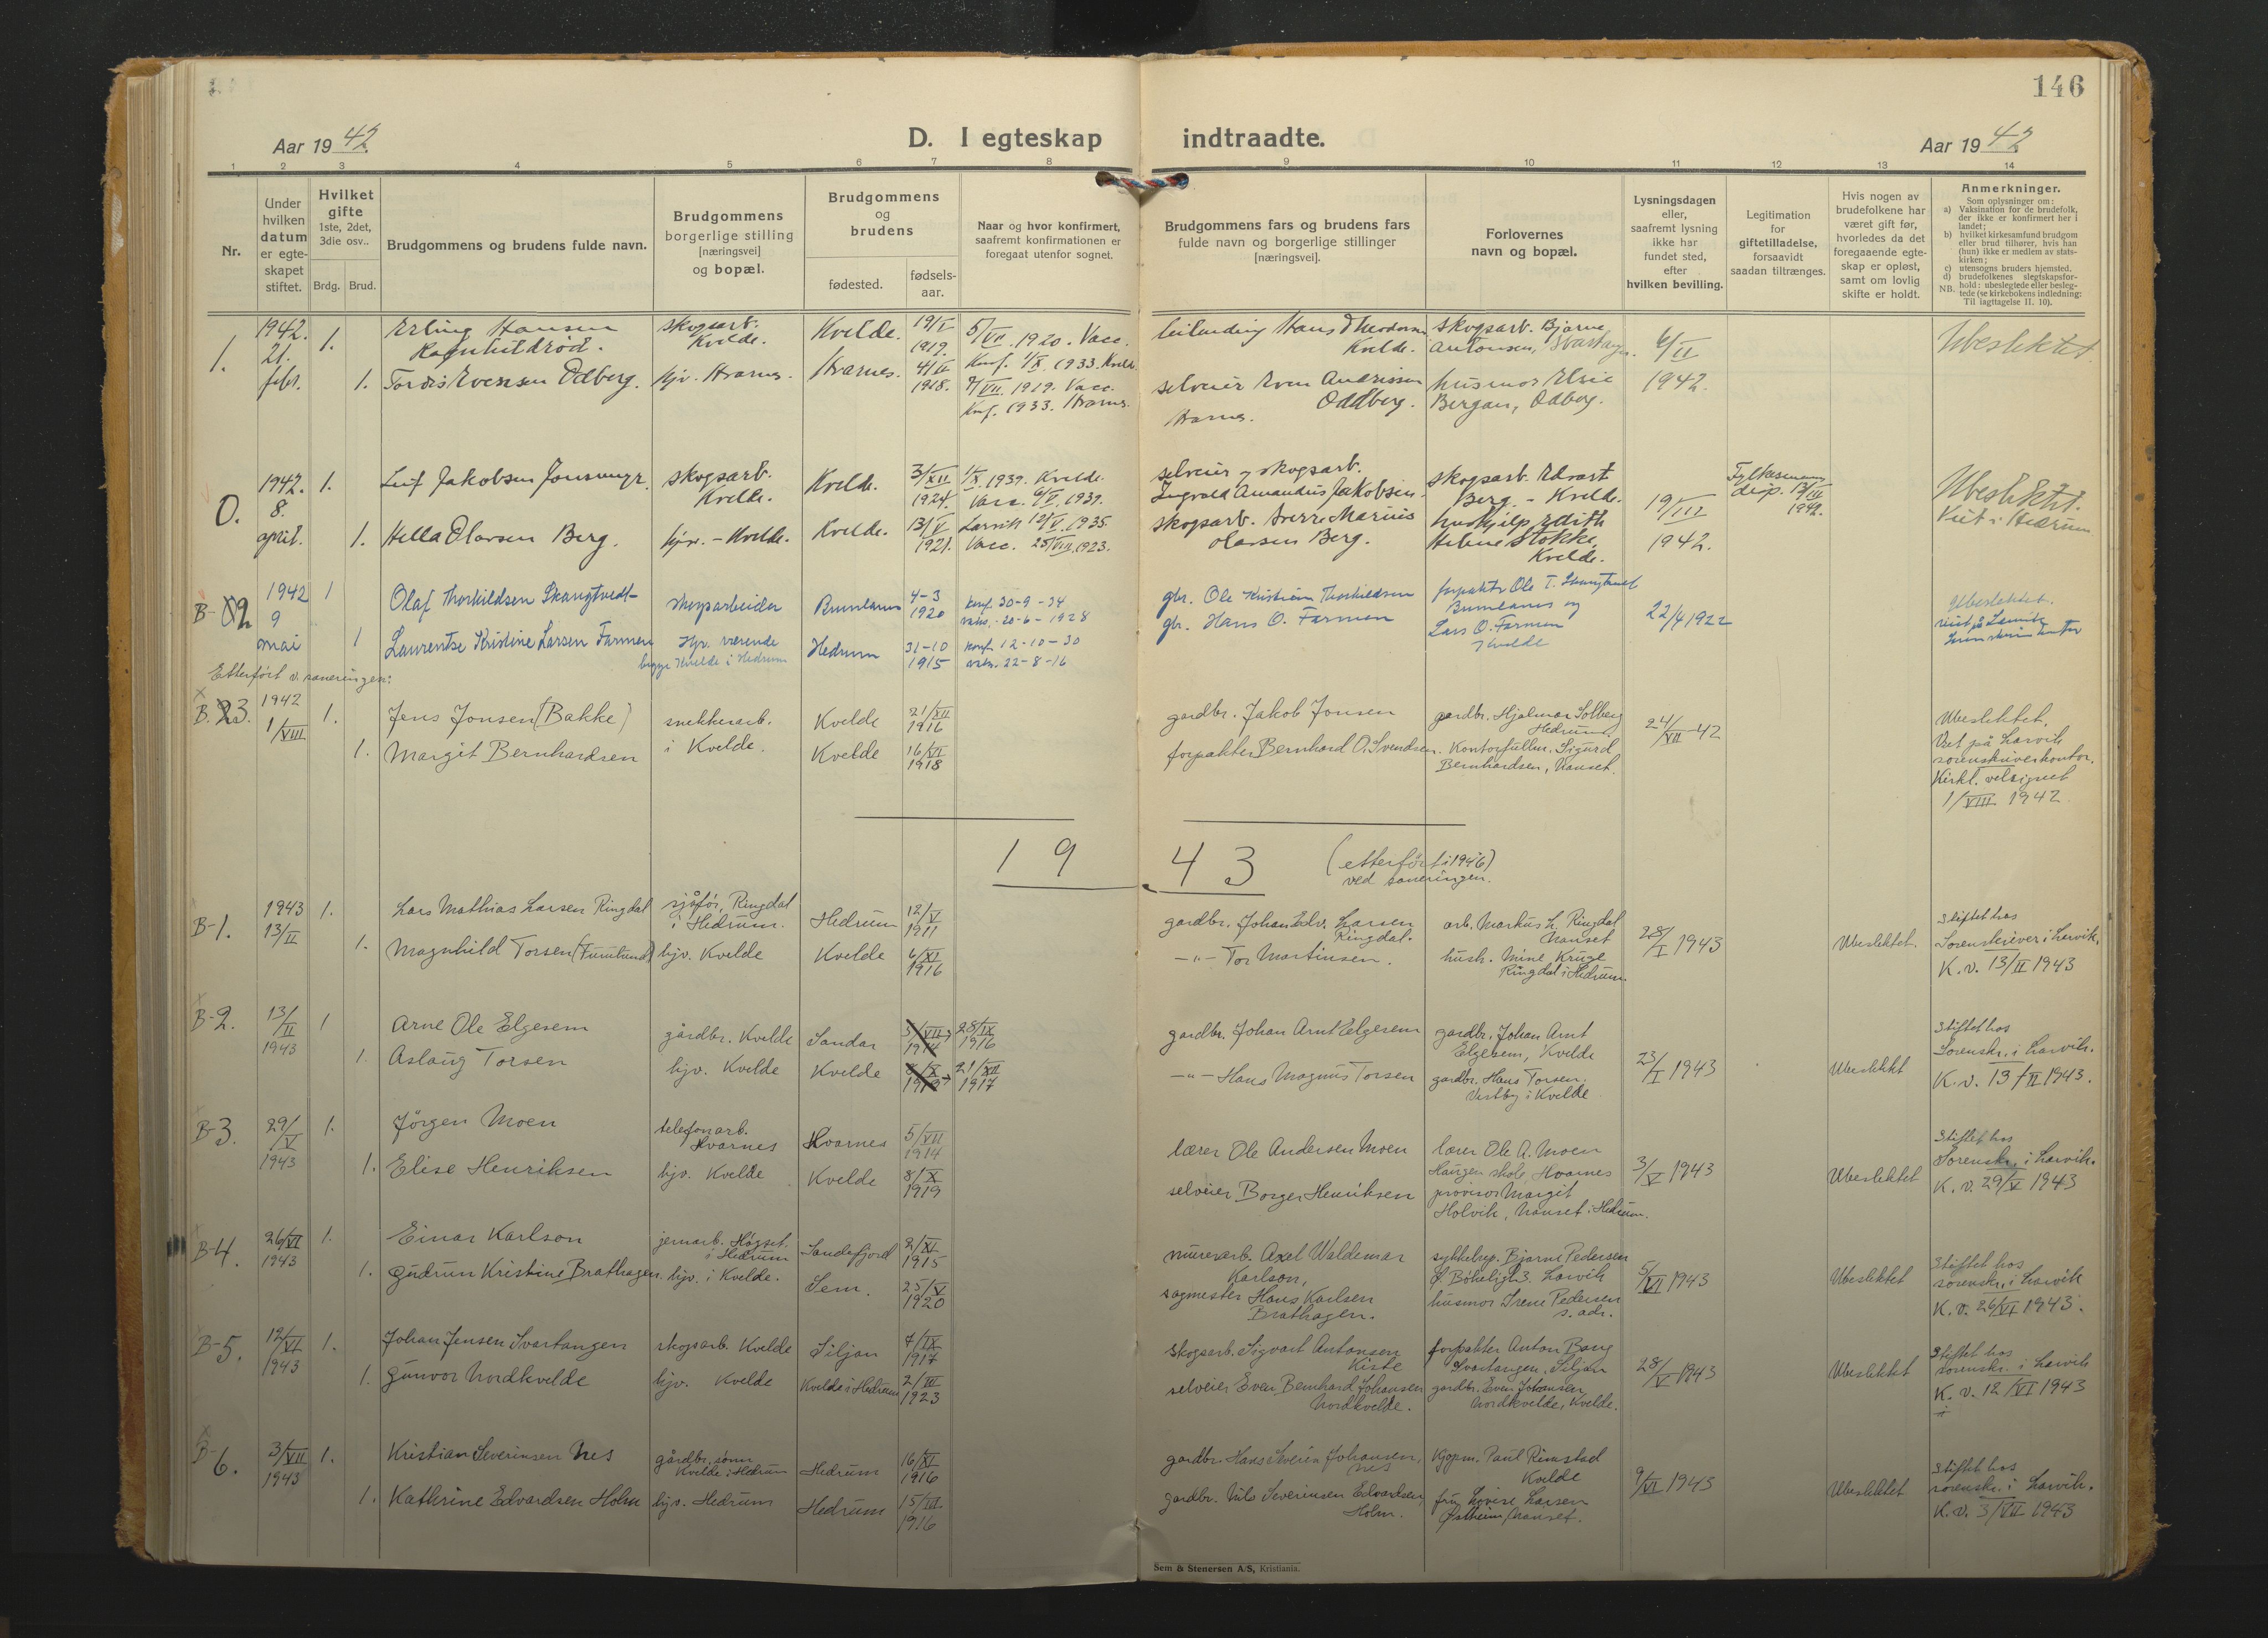 146
Aar 1942.
D. I egteskap indtraadte.
Aar 1942
1 2 3 4 5 6 7 8 9 10 11 12 13 14
Nr.
Under hvilken datum er egteskapet stiftet.
Hvilket gifte 1ste, 2det, 3die osv..
Brdg. Brud.
Brudgommens og brudens fulde navn.
Brudgommens borgerlige stilling [næringsvei] og bopæl.
Brudgommens og brudens
fødested.
fødsels-aar.
Naar og hvor konfirmert, saafremt konfirmationen er foregaat utenfor sognet.
Brudgommens fars og brudens fars fulde navn og borgerlige stillinger [næringsvei].
Forlovernes navn og bopæl.
Lysningsdagen eller, saafremt lysning ikke har fundet sted, efter hvilken bevilling.
Legitimation for giftetilladelse, forsaavidt saadan tiltrænges.
Hvis nogen av brudefolkene har været gift før, hvorledes da det foregaaende egteskap er opløst, samt om lovlig skifte er holdt.
Anmerkninger.
Som oplysninger om:
a) Vaksination for de brudefolk, der ikke er konfirmert her i landet;
b) hvilket kirkesamfund brudgom eller brud tilhører, hvis han (hun) ikke er medlem av statskirken;
c) utensogns bruders hjemsted.
d) brudefolkenes slegtskapsforhold: ubeslegtede eller beslegtede (se kirkebokens indledning: NB. Til iagttagelse II. 10).
1. 1942. 21. febr. 1. Erling Hansen skogsarb. Kvelde. 19/I 5/VII. 1920. Vacc.
Ragnhildrød. Kvelde. 1919. Konf. 1/X. 1933. Kvelde
1. Tordis Evensen Odberg. hjv. Hvarnes. Hvarnes. 4/IV 1918. 7/VII. 1919. Vacc.
Konf. 1933. Hvarnes.
leilending Hans Theodorsen Kvelde. skogsarb. Bjarne Antonsen, 6/II 1942. Ubeslektet
selveier Even Andersen Oddberg. Hvarnes. husmor Elsie Bergan, Odberg.
0. 1942. 8. april. 1. Leif Jakobsen Jonsmyr. skogsarb. Kvelde. Kvelde. 3/XII 1924. 1/X. 1939. Kvelde.
Vacc. 6/V. 1939.
1. Hella Olavsen Berg. hjv. - Kvelde. Kvelde. 13/V 1921. Larvik 12/V. 1935.
Vacc. 25/VIII. 1923.
selveier og skogsarb. Ingvald Amandus Jakobsen. skogsarb. Edvart Berg. - Kvelde. 19/III 1942. Fylkesmanns disp. 13/III 1942. Ubeslektet. Viet i Hedrum
skogsarb. Sverre Marius Olavsen Berg. hushjelp Edith Helene Stokke, Kvelde.
B-2 1942 9 mai 1 Olaf Thorkildsen Skangtvedt skogsarbeider Brunlanes 4-3 1920 konf. 30-9-34
vaks. 20-6-1928
1 Laurentse Kristine Larsen Farmen Hjv. værende Hedrum 31-10 1915 konf. 12-10-30
begge Kvelde i Hedrum vaks. 22-8-16
gbr. Ole Kristian Thorkildsen forpakter Ole T. Skangtvedt Brunlanes og 22/4 1922 Ubeslektet.
gbr. Hans O. Farmen Lars O. Farmen Kvelde viet på Larvik
Etterført v. saneringen:
B. 3. 1942 1/VIII 1. Jens Jonsen (Bakke) snekkerarb. i Kvelde. Kvelde 21/XII 1916
1. Margit Bernhardsen Kvelde 16/VI 1918
gardbr. Jakob Jonsen gardbr. Hjalmar Solberg Hedrum. 24/VII-42 Ubeslektet. Viet på Larvik sorenskriverkontor. Kirkl. velsignet 1/VIII 1942.
forpakter Bernhard O. Svendsen. Kontorfullm. Sigurd Bernhardsen, Nanset.
1943 (etterført i 1946) ved saneringen.
B-1. 1943 13/II 1. Lars Mathias Larsen Ringdal sjåfør, Ringdal i Hedrum. Hedrum 12/V 1911
1. Magnhild Torsen (Furulund) hjv. Kvelde Kvelde 6/XI 1916
gardbr. Johan Edv. Larsen Ringdal. arb. Markus L. Ringdal Nanset 28/I 1943 Ubeslektet. Stiftet hos Sorenskriver i Larvik.
-"- Tor Martinsen. hush. Mine Kruge Ringdal i Hedrum. K.v. 13/II 1943
B-2. 13/II 1943 1 Arne Ole Elgesem gårdbr. Kvelde Sandar 5/VII 1914 28/IX 1916
1. Aslaug Torsen hjv. Kvelde Kvelde 8/X 1919 21/XII 1917
gardbr. Johan Arnt Elgesem gardbr. Johan Arnt Elgesem, Kvelde 23/I 1943 Ubeslektet Stiftet hos Sorenskr. i Larvik.
-"- Hans Magnus Torsen gardbr. Hans Torsen. Vestby i Kvelde K.v. 13/II 1943.
B-3. 29/V 1943 1. Jörgen Moen telefonarb. Hvarnes Hvarnes 5/VII 1914
1. Elise Henriksen hjv. Kvelde Kvelde 8/X 1919
lærer Ole Andersen Moen lærer Ole A. Moen Haugen skole Hvarnes 3/V 1943 Ubeslektet Stiftet hos Sorenskr. i Larvik.
selveier Borger Henriksen provisor Margit Holvik, Nanset i Hedrum. K.v. 29/V 1943
B-4. 26/VI 1943 1. Einar Karlson jernarb. Høgset. i Hedrum Sandefjord 2/XI 1915
1. Gudrun Kristine Brathagen. hjv. i Kvelde. Sem. 25/V 1920
murerarb. Axel Waldemar Karlson, sykkelrep. Bjarne Pedersen Ø. Bøkeligt 3. Larvik 5/VI 1943 Ubeslektet Stiftet hos sorenskr. i Larvik
sagmester Hans Karlsen Brathagen. husmor Irene Pedersen s. adr. K.v. 26/VI 1943.
B-5. 12/VI 1943 1. Johan Jensen Svartangen skogsarb. Kvelde Siljan 7/IX 1917
1. Gunvor Nordkvelde hjv. Kvelde Kvelde i Hedrum 2/III 1923
skogsarb. Sigvart Antonsen Kiste forpakter Anton Bang Svartangen, Siljan 28/V 1943 Ubeslektet Stiftet hos sorenskr. i Larvik
selveier Even Bernhard Johansen Nordkvelde. gardbr. Even Johansen Nordkvelde, Kvelde. K.v. 12/VI 1943
B-6. 3/VII 1943 1. Kristian Severinsen Nes gårdbr. sønn Kvelde i Hedrum Hedrum 16/XI 1916
1. Kathrine Edvardsen Holm hjv. Hedrum Hedrum 15/III 1916
gardbr. Hans Severin Johansen, Nes Kjøpm. Paul Rimstad Kvelde 9/VI 1943 Ubeslektet Stiftet hos sorenskr. i Larvik.
gardbr. Nils Severinsen Edvardsen, Holm. fru Lovise Larsen Østheim, Nanset. K.v. 3/VII 1943
Sem & Stenersen A/S, Kristiania.